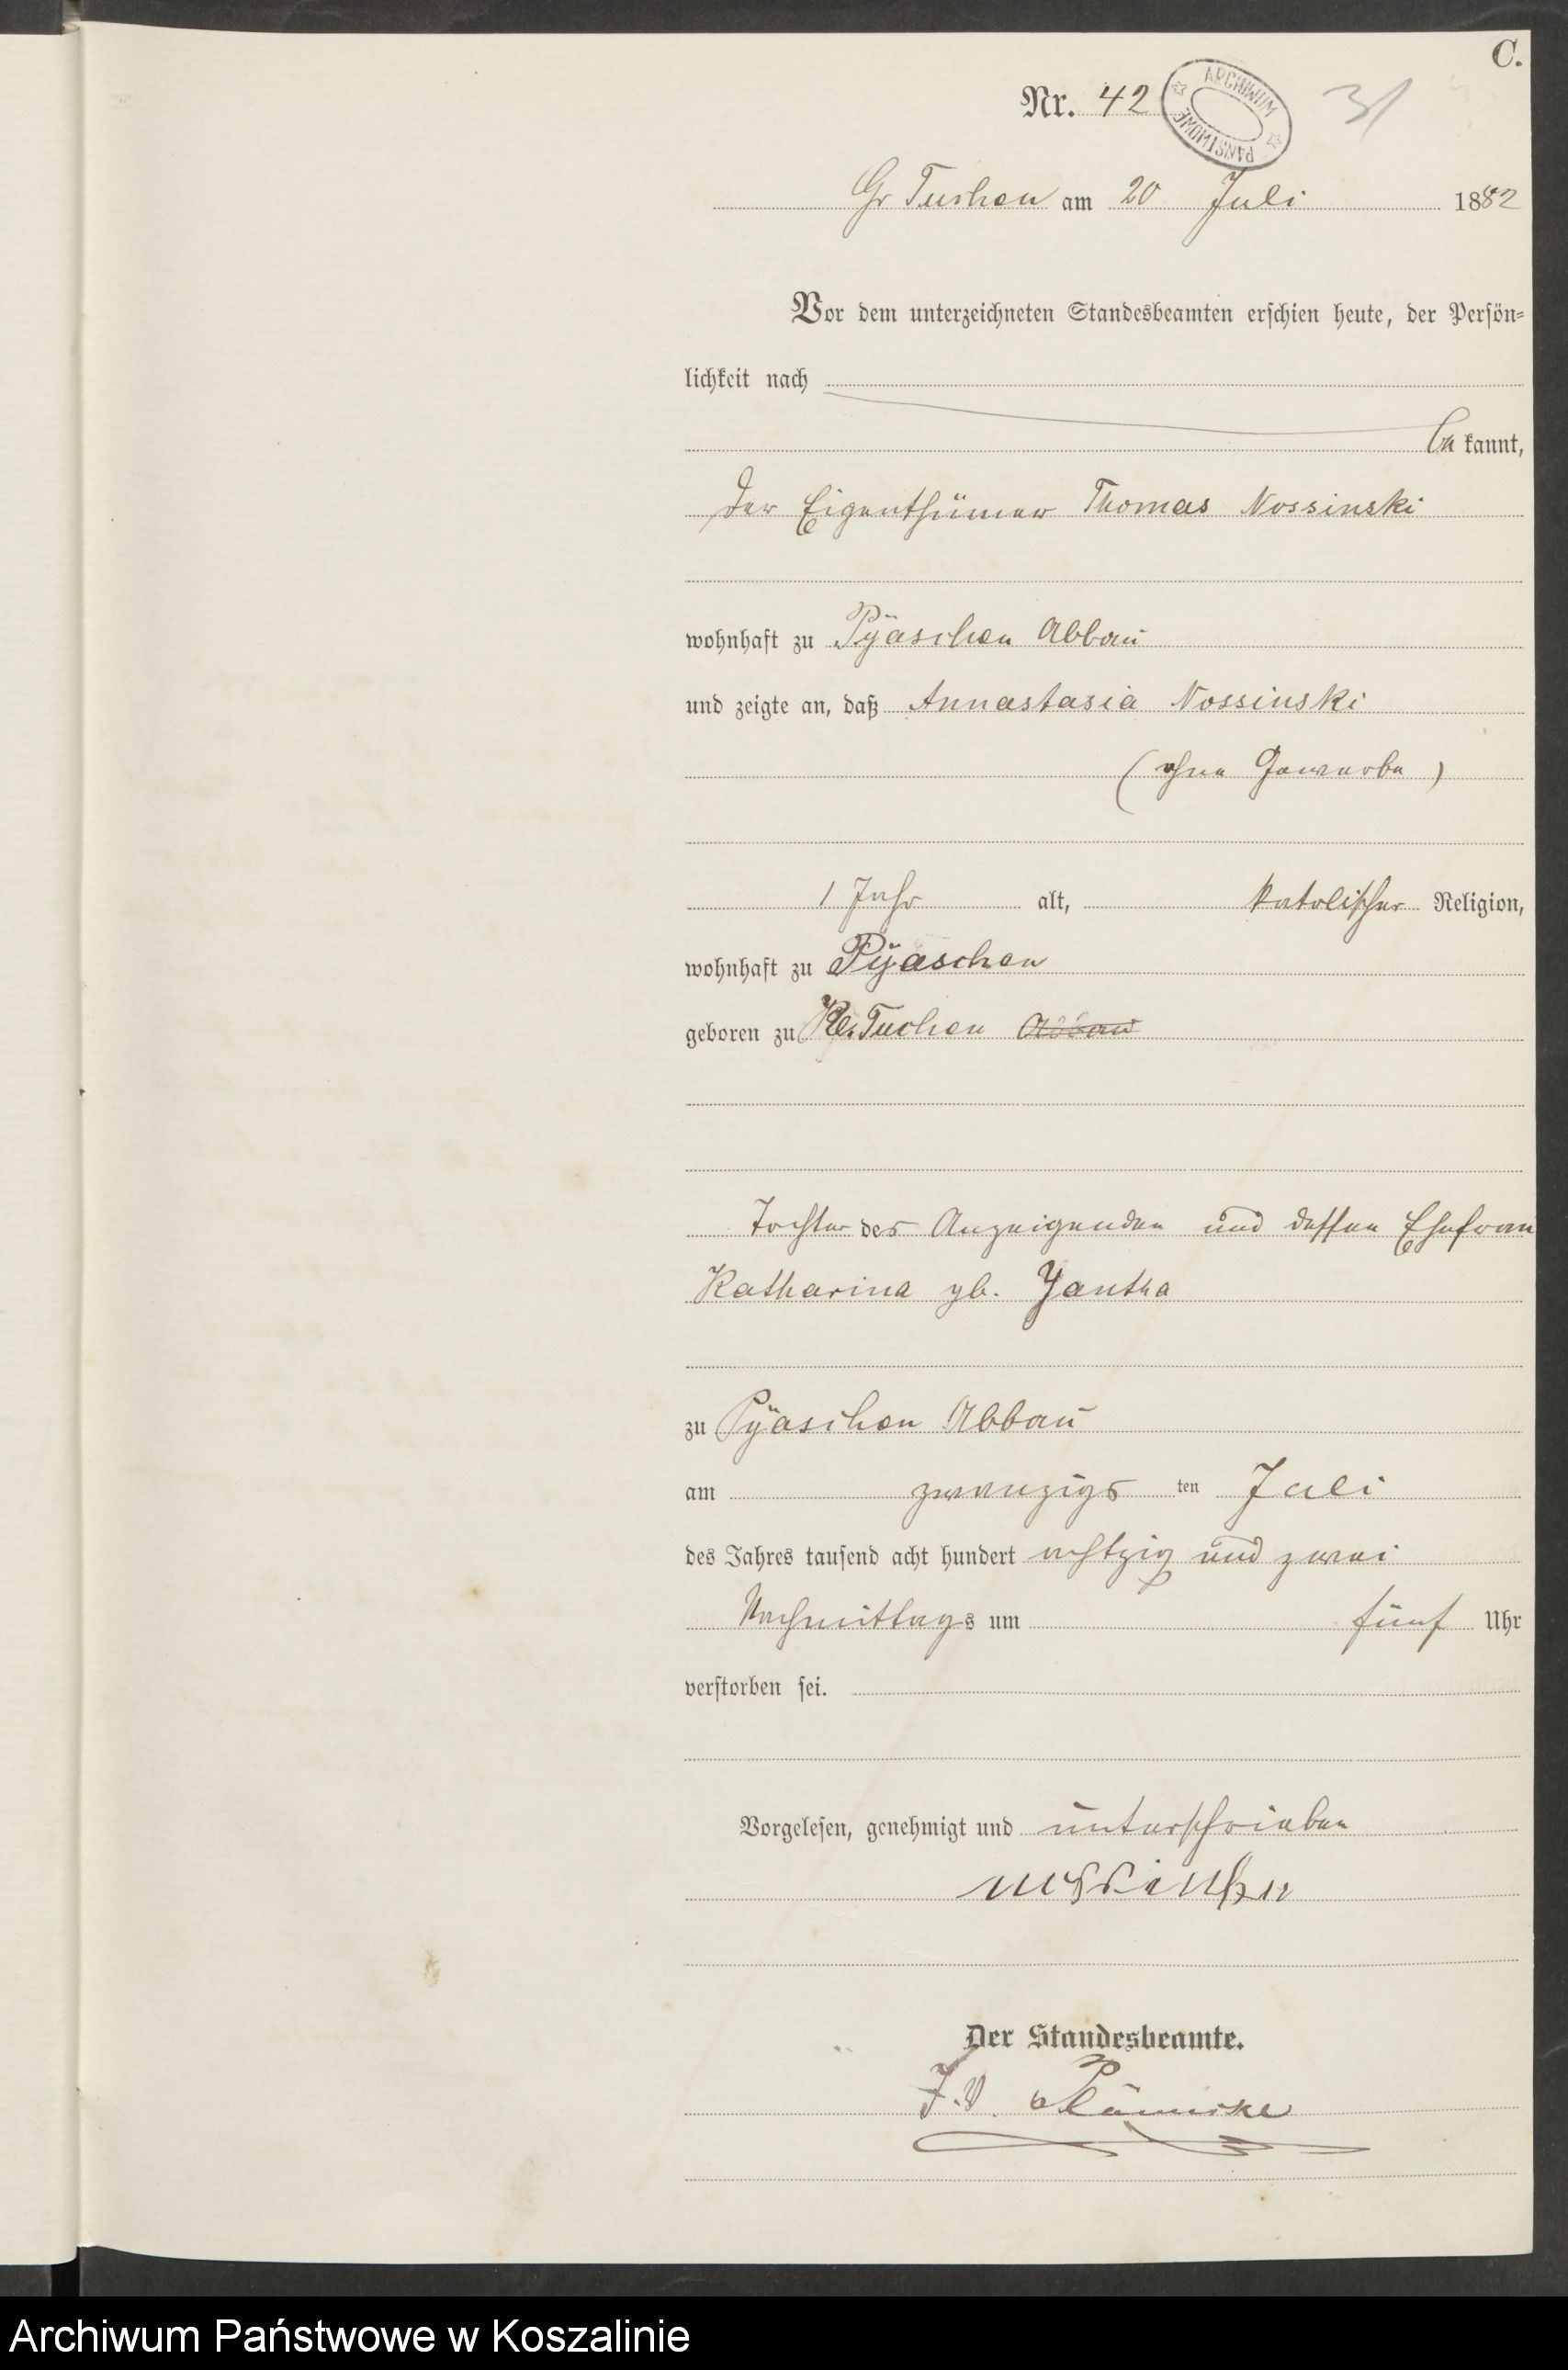 C.
Nr. 42
ARCHIWUM PAŃSTWOWE
31
Gr Tuchen am 20 Juli 1882
Vor dem unterzeichneten Standesbeamten erschien heute, der Persön-
lichkeit nach
be kannt,
der Eigenthümer Thomas Nossinski
wohnhaft zu Pyaschen Abbau
und zeigte an, daß Annastasia Nossinski
(ohne Gewerbe)
1 Jahr alt, katolischer Religion,
wohnhaft zu Pyaschen
geboren zu Kl. Tuchen Abbau
Tochter des Anzeigenden und dessen Ehefrau
Katharina gb. Jantha
zu Pyaschen Abbau
am zwanzigs ten Juli
des Jahres tausend acht hundert achtzig und zwei
Nachmittags um fünf Uhr
verstorben sei.
Vorgelesen, genehmigt und unterschrieben
Der Standesbeamte.
J.V.
Archiwum Państwowe w Koszalinie